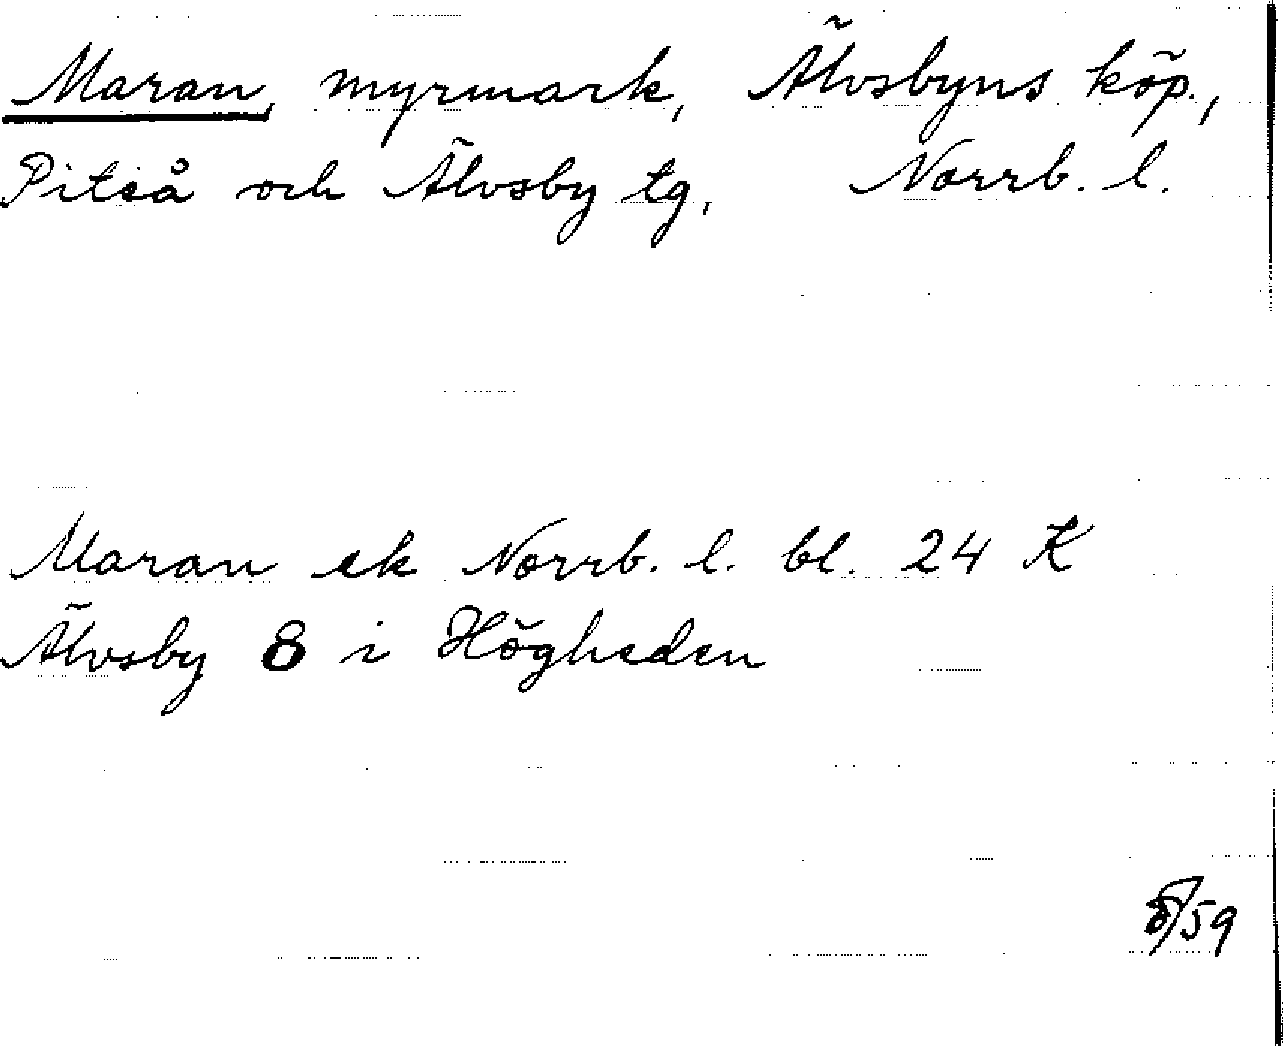 Maran, myrmark, Älvsbyns köp.,
Piteå och Älvsby tg, Norrb. l.
Maran ek Norrb. l. bl. 24 K
Älvsby 8 i Högheden
/59